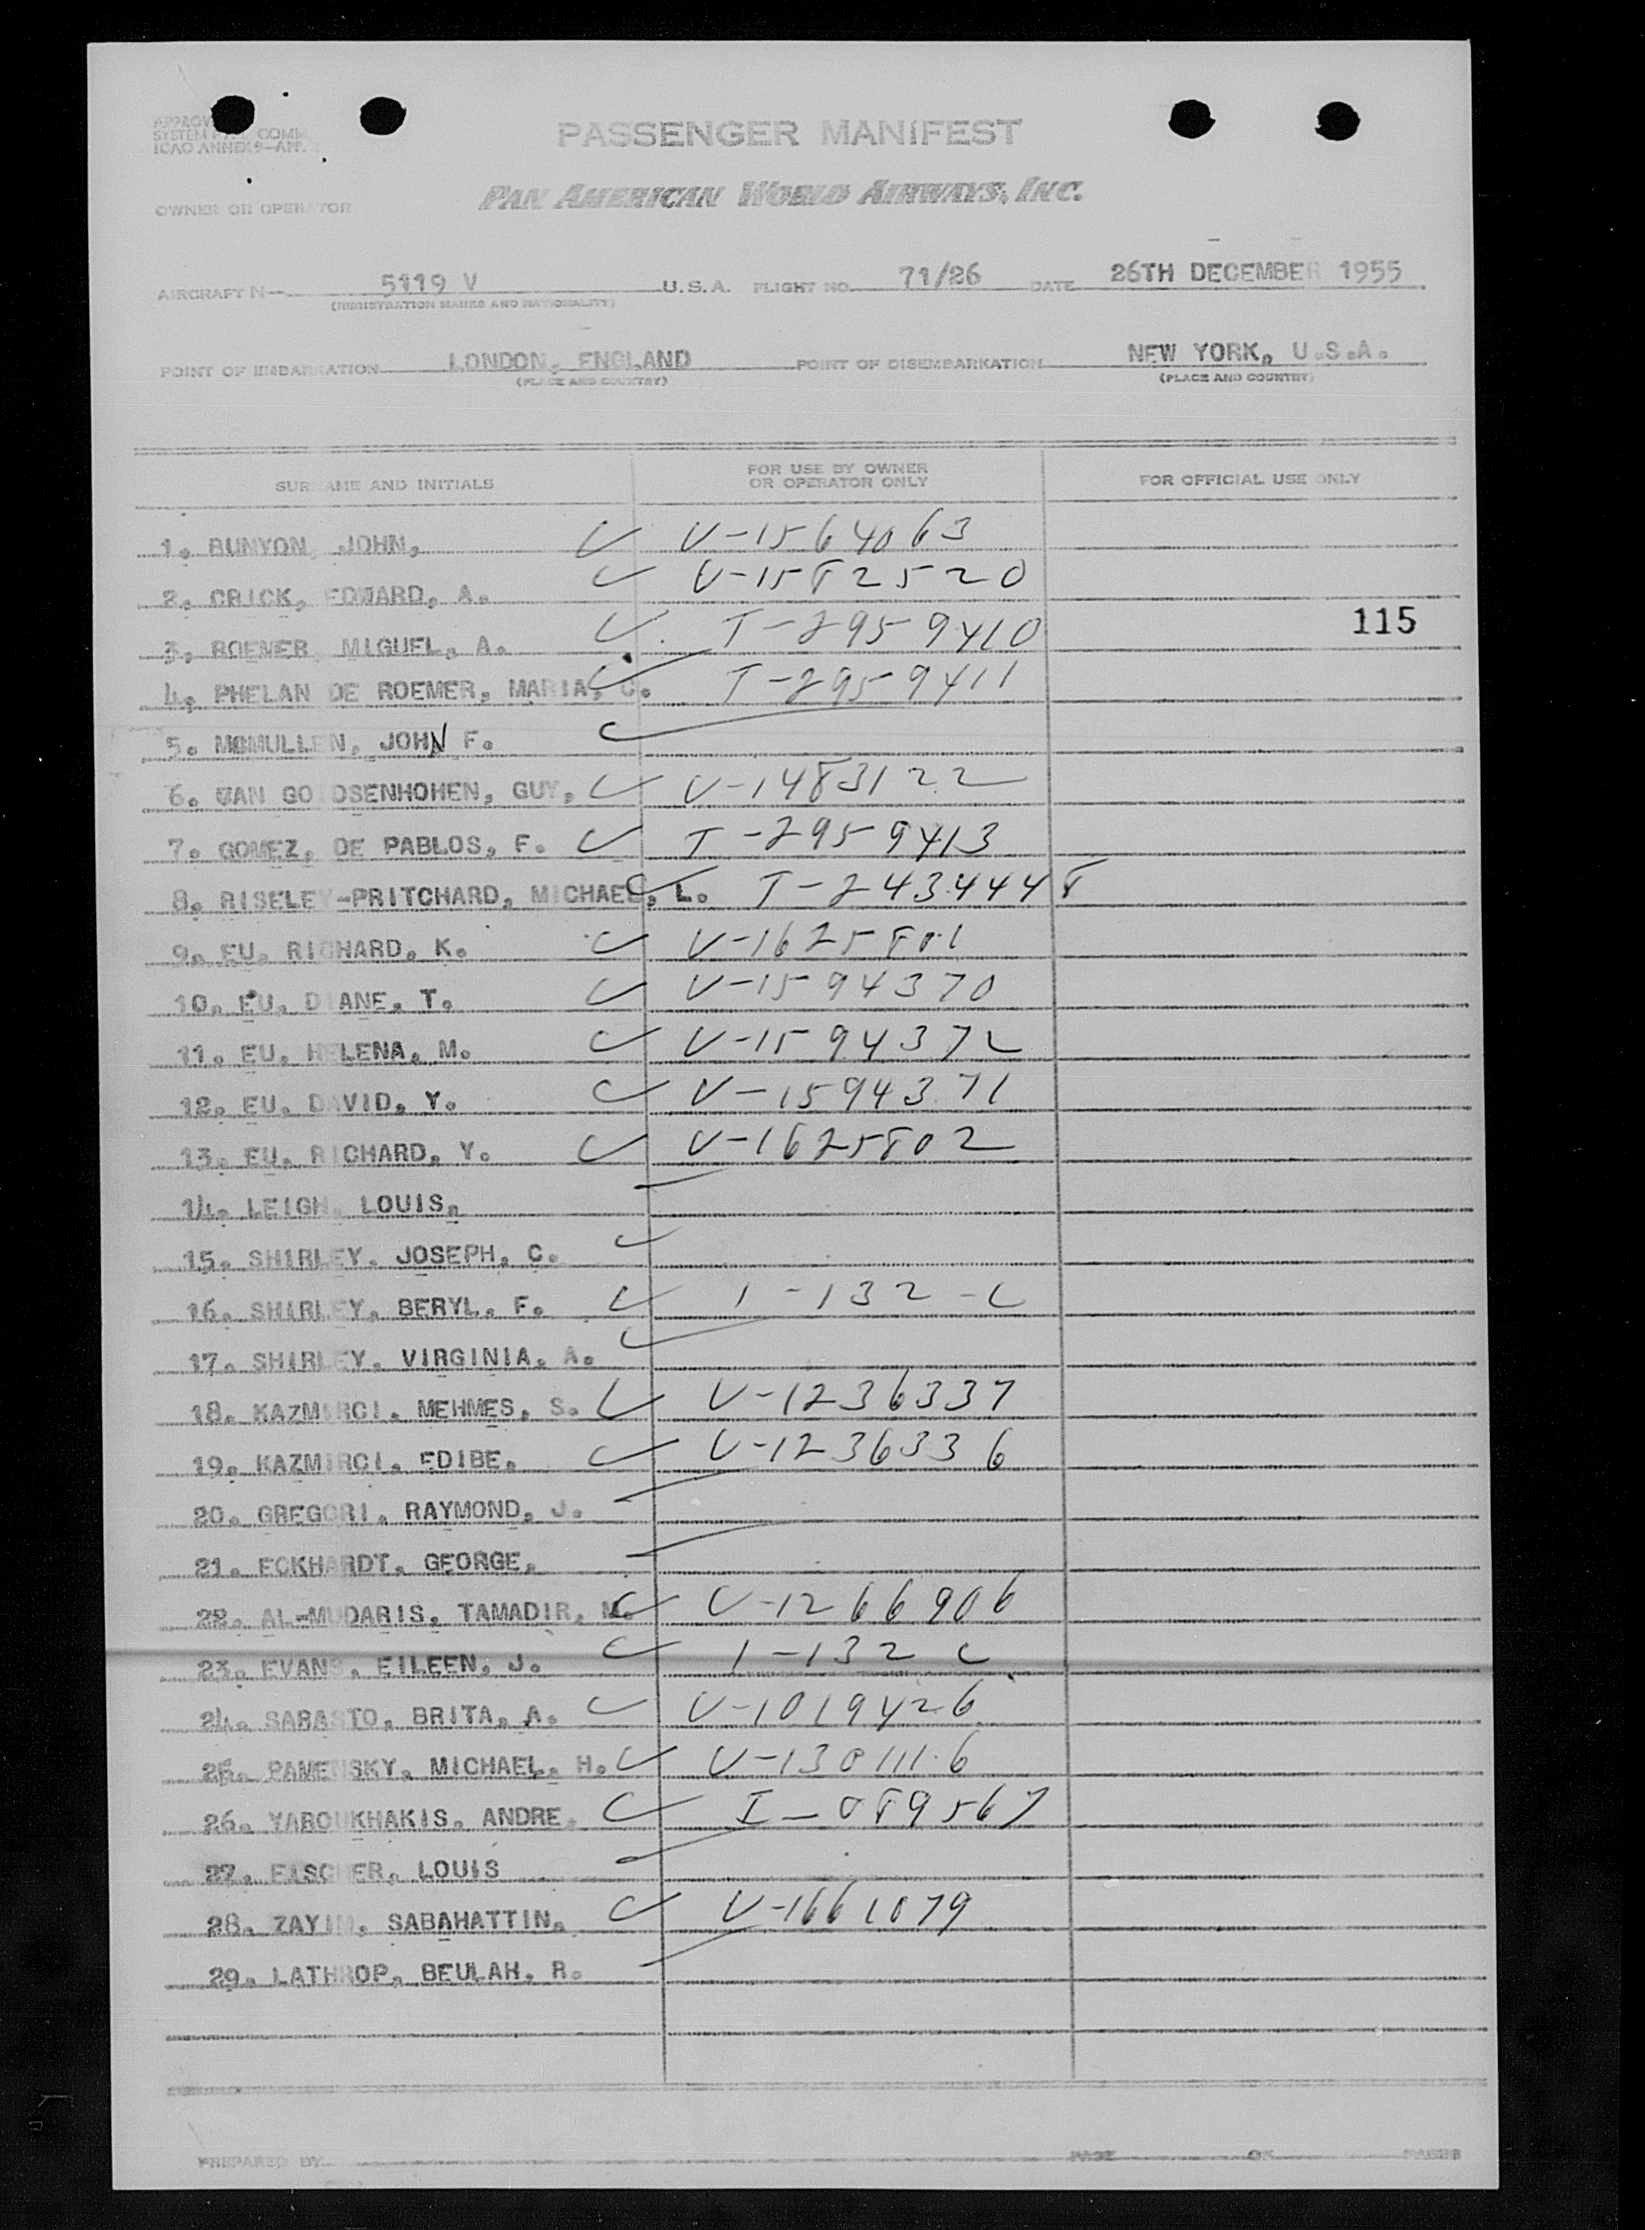 PASSENGER MANIFEST
ICAO ANNEX 9-APP.
OWNER OR OPERATOR PAN AMERICAN WORLD AIRWAYS, INC.
AIRCRAFT N- 5119 V U.S.A. FLIGHT NO. 71/26 DATE 26TH DECEMBER 1955
(REGISTRATION MARKS AND NATIONALITY)
POINT OF EMBARKATION LONDON, ENGLAND POINT OF DISEMBARKATION NEW YORK, U.S.A.
(PLACE AND COUNTRY) (PLACE AND COUNTRY)
SURNAME AND INITIALS FOR USE BY OWNER OR OPERATOR ONLY FOR OFFICIAL USE ONLY
1. BUNYON, JOHN, V-1564063
2. CRICK, EDWARD, A. V-1582520
3. ROEMER, MIGUEL, A. T-2959410 115
4. PHELAN DE ROEMER, MARIA, C. T-2959411
5. MCMULLEN, JOHN F.
6. VAN GOIDSENHOHEN, GUY, V-1483122
7. GOMEZ, DE PABLOS, F. T-2959413
8. RISELEY-PRITCHARD, MICHAEL, L. T-2434448
9. EU, RICHARD, K. V-1625801
10. EU, DIANE, T. V-1594370
11. EU, HELENA, M. V-1594372
12. EU, DAVID, Y. V-1594371
13. EU, RICHARD, Y. V-1625802
14. LEIGH, LOUIS,
15. SHIRLEY, JOSEPH, C.
16. SHIRLEY, BERYL, F. 1-132-C
17. SHIRLEY, VIRGINIA, A.
18. KAZMIRCI, MEHMES, S. V-1236337
19. KAZMIRCI, EDIBE, V-1236336
20. GREGORI, RAYMOND, J.
21. ECKHARDT, GEORGE,
22. AL-MUDARIS, TAMADIR, M. V-1266906
23. EVANS, EILEEN, J. 1-132 C
24. SARASTO, BRITA, A. V-1019426
25. PAMENSKY, MICHAEL, H. V-1301116
26. YAROUKHAKIS, ANDRE, I-089567
27. FISCHER, LOUIS
28. ZAYIM, SABAHATTIN, V-1661079
29. LATHROP, BEULAH, R.
PREPARED BY PAGE OF PAGES